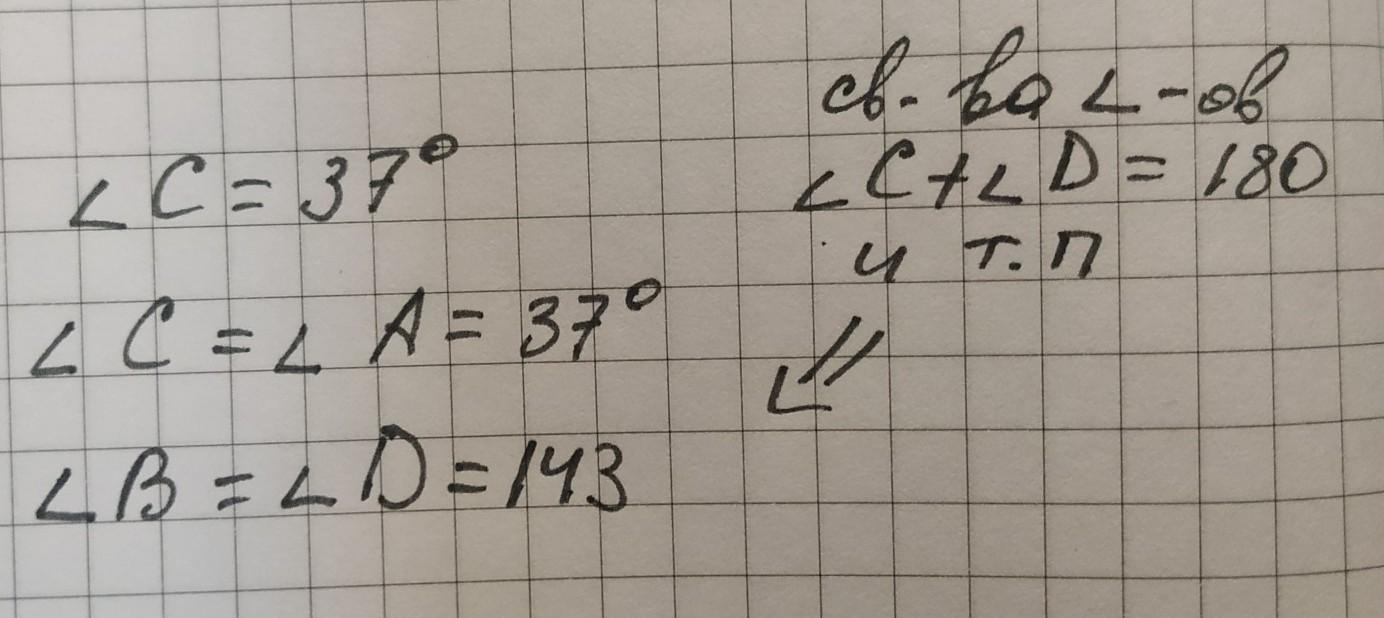 ∠C = 37°
∠C = ∠A = 37°
∠B = ∠D = 143
св-ва ∠-ов
∠C + ∠D = 180
и т.п